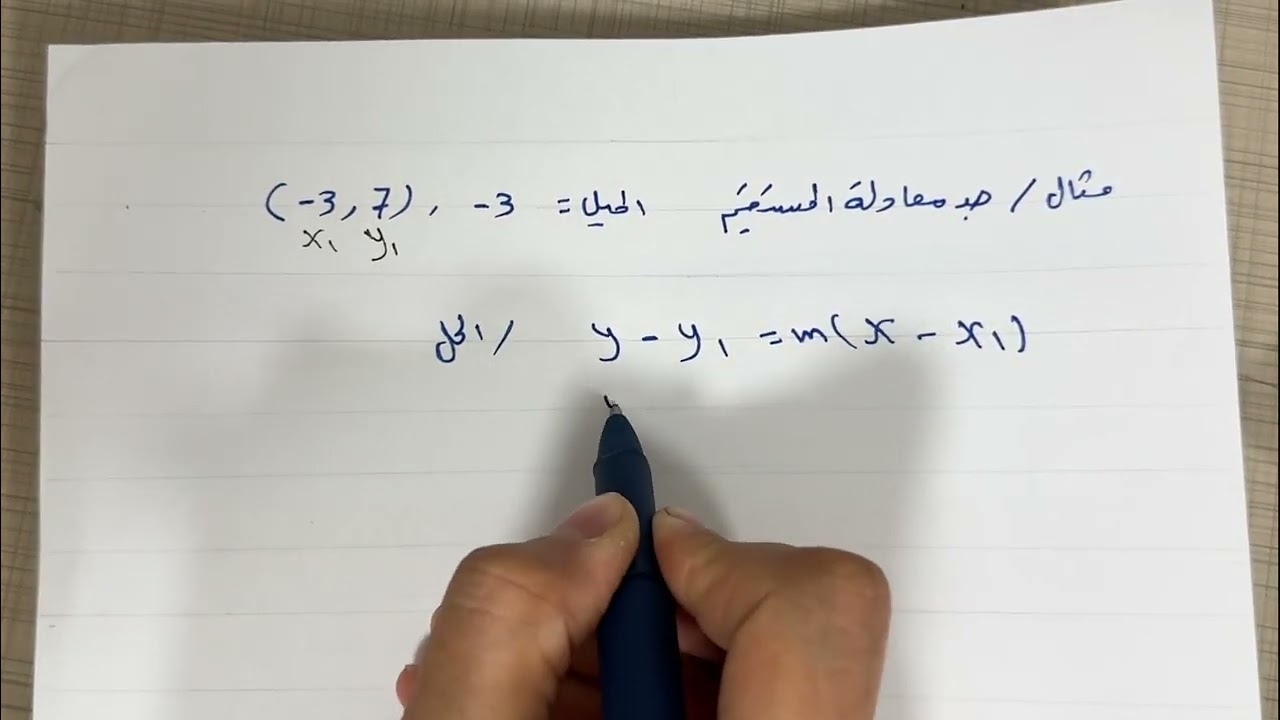 مثال / جد معادلة المستقيم الميل = -3 , (-3, 7)
x₁ y₁
الحل / y - y₁ = m(x - x₁)